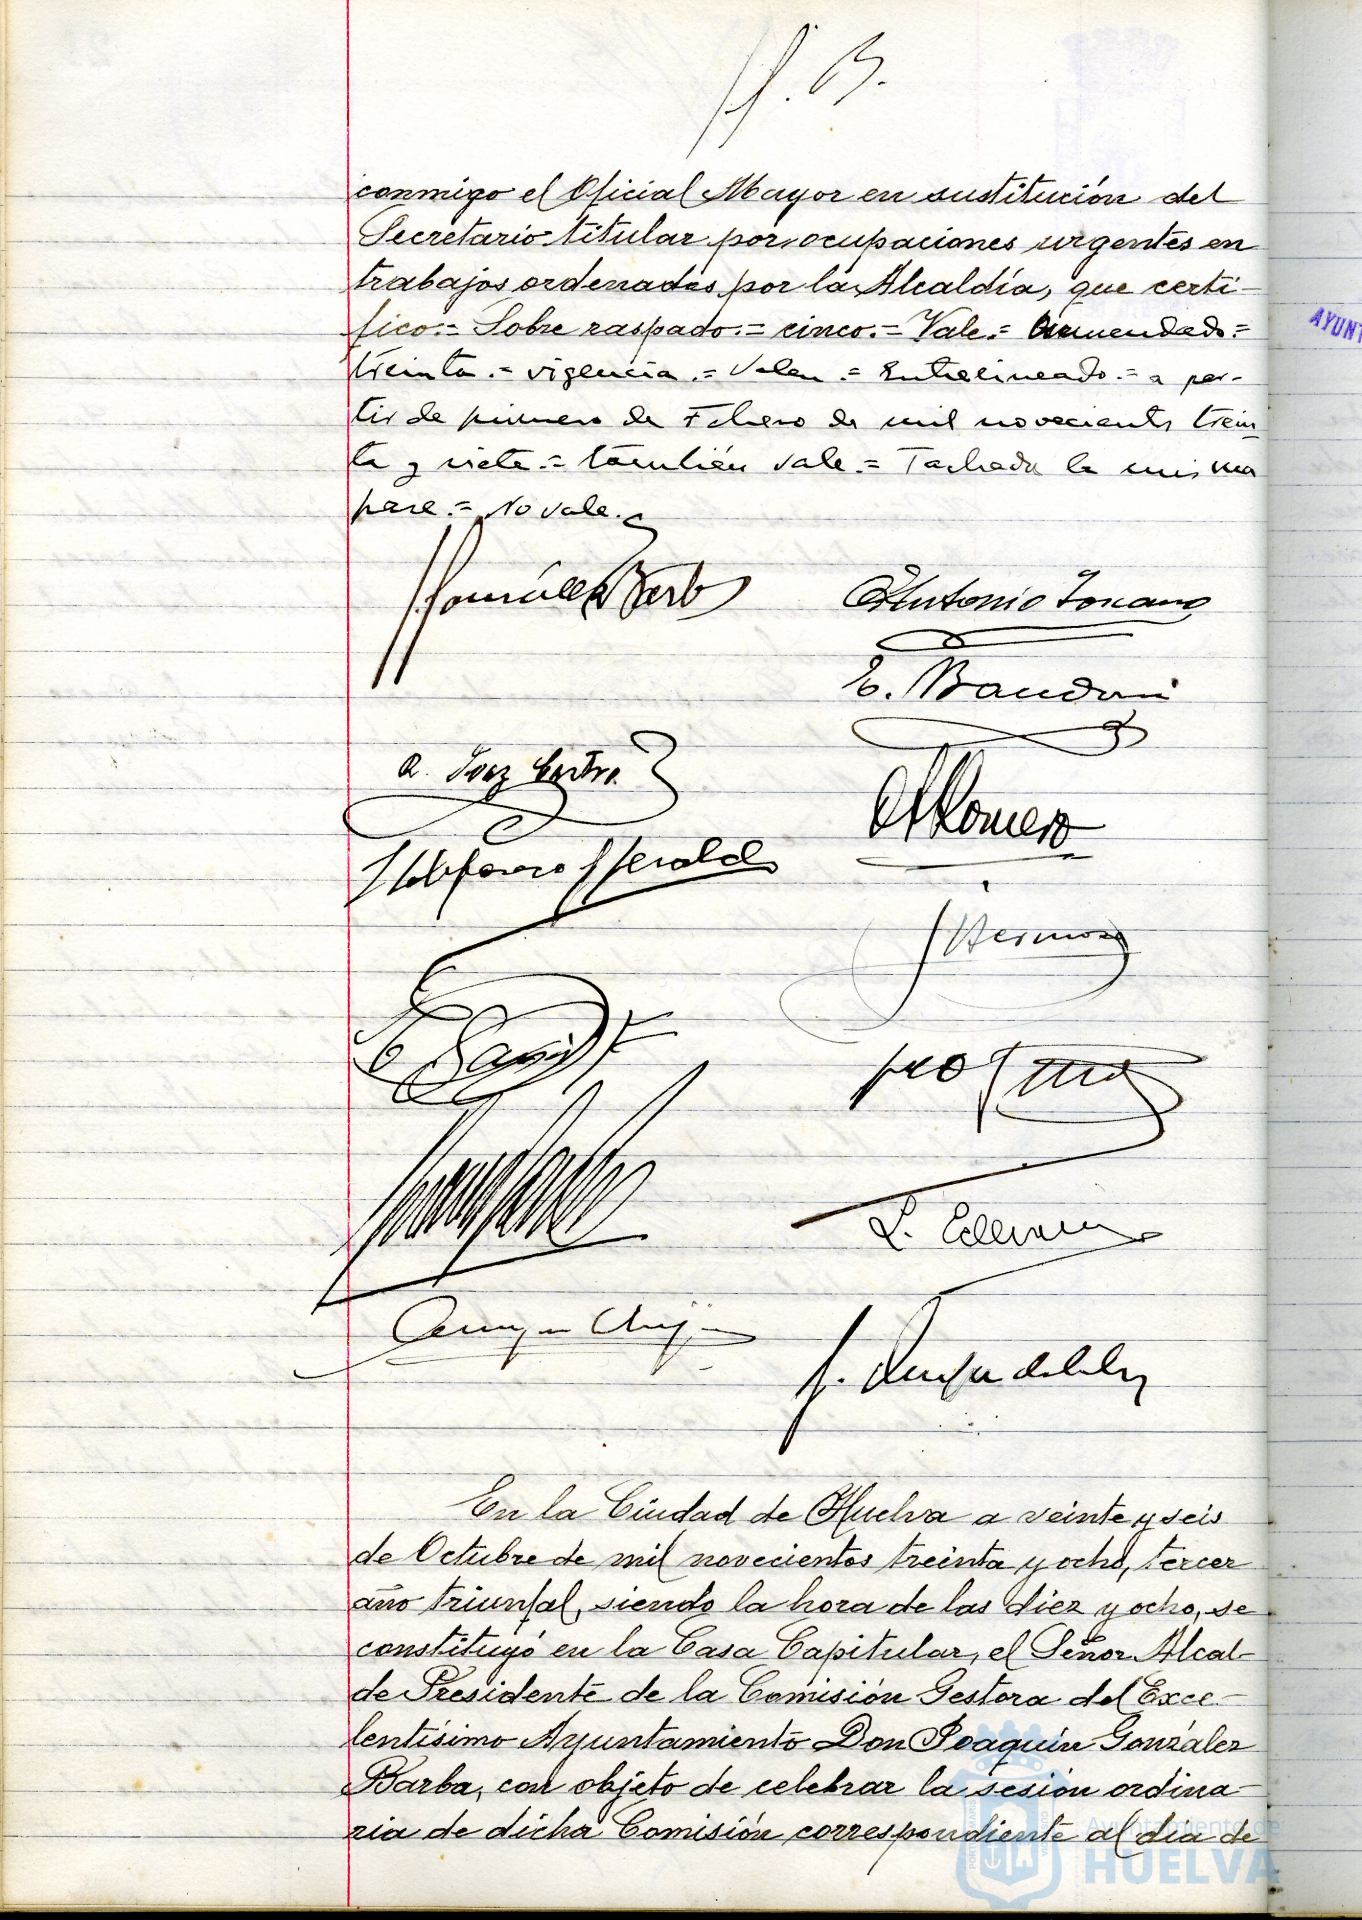 conmigo el Oficial Mayor en sustitución del
Secretario titular por ocupaciones urgentes en
trabajos ordenados por la Alcaldía, que certi-
fico.= Sobre raspado.= cinco.= Vale.= Enmendado=
treinta.= vigencia.= Valen.= Entrelineado.= a par-
tir de primero de Febrero de mil novecientos trein-
ta y siete.= también vale.= Tachada la misma
frase.= No vale.
González Barba
Antonio Toscano
A. Romero
J. Hermoso
En la Ciudad de Huelva a veinte y seis
de Octubre de mil novecientos treinta y ocho, tercer
año triunfal, siendo la hora de las diez y ocho, se
constituyó en la Casa Capitular, el Señor Alcal-
de Presidente de la Comisión Gestora del Exce-
lentísimo Ayuntamiento Don Joaquín González
Barba, con objeto de celebrar la sesión ordina-
ria de dicha Comisión correspondiente al día de
Ayuntamiento de
HUELVA
AYUNT